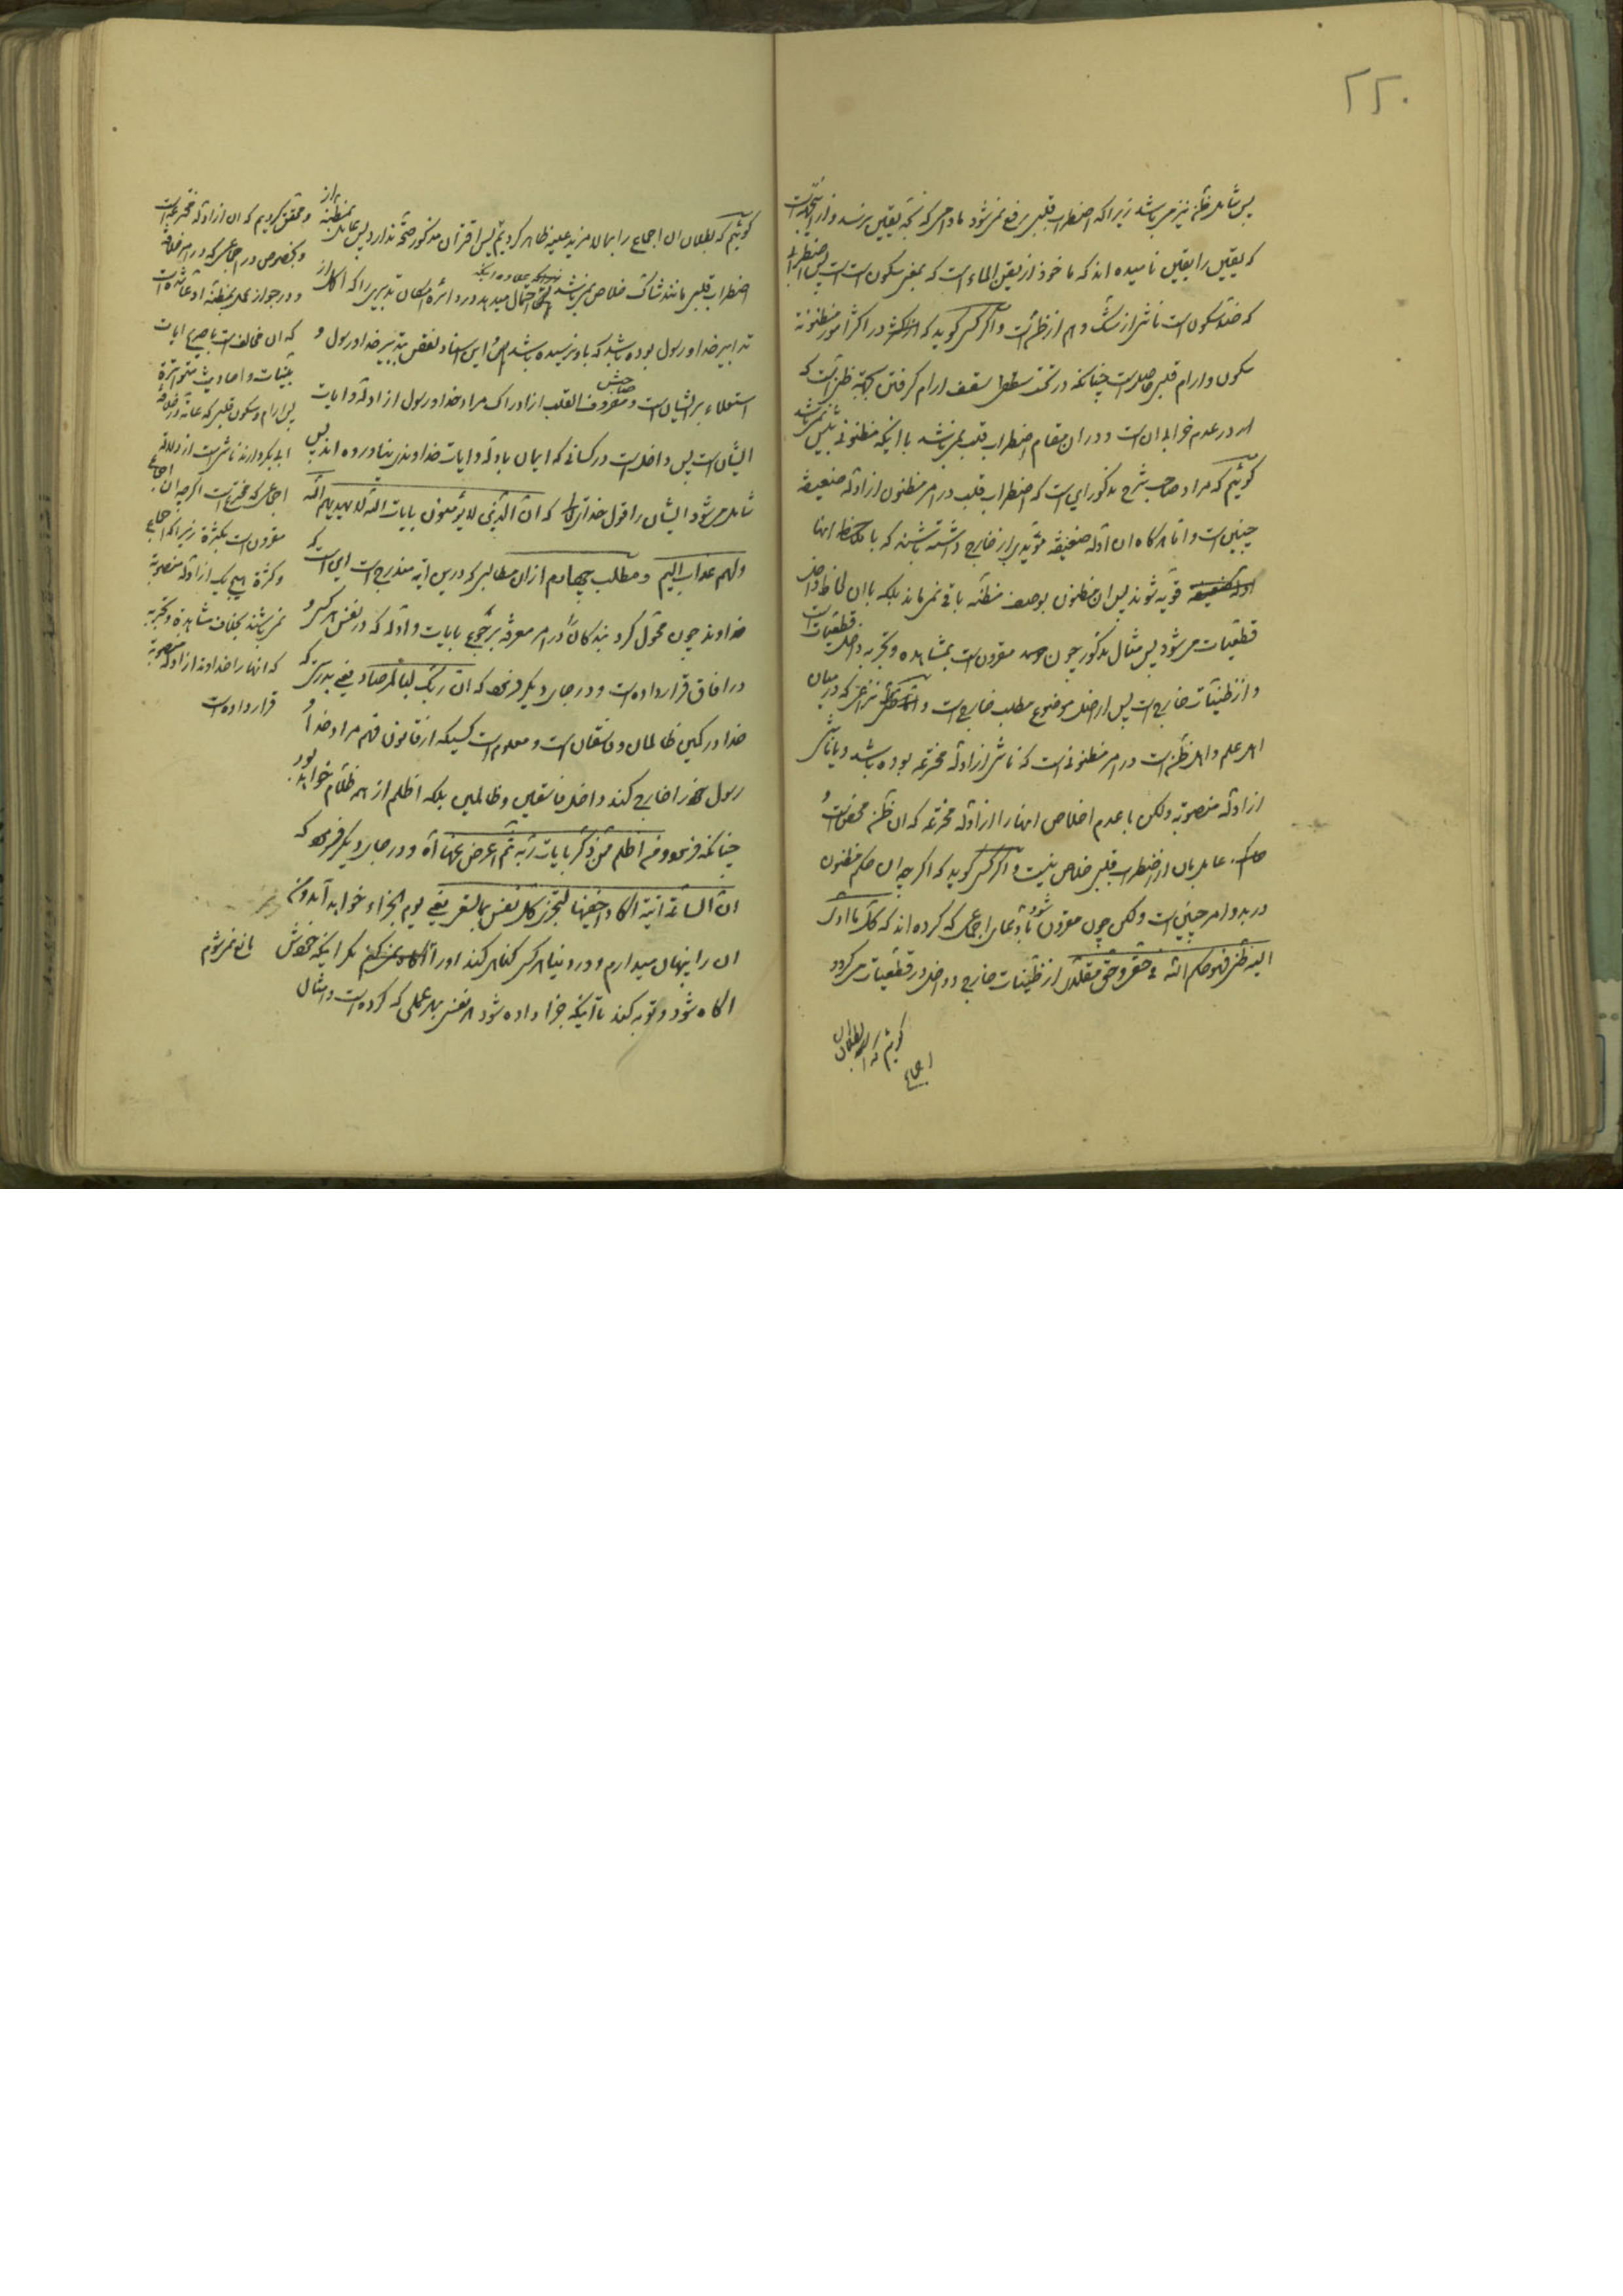 ۲۲۰
پس شامل ظن نیز میباشد زیرا که اضطراب قلبی رفع نمیشود مادامی که بحد یقین نرسد و از
که یقین را یقین نامیده اند که ماخوذ از یقن الماء است که بمعنی سکون است پس اضطرابی
که ضد سکون است ناشی از شک و هم از ظن است و اگر کسی گوید که در اکثر امور مظنونه
سکون و ارام قلبی حاصل است چنانکه در تحت سقف ارام گرفتن بجهة ظنی است که
او در عدم خرابی ان است و در ان مقام اضطراب قلب نمیباشد با اینکه مظنونی بیش نمیباشد
گوئیم که مراد صاحب شرح مذکور این است که اضطراب قلب در امر مظنون از ادله ضعیفه
چنین است و اما هرگاه ان ادله ضعیفه مؤیدی از خارج داشته باشند که با ملاحظه انها
قویه شوند پس ان مظنون بوصف مظنه باقی نمیماند بلکه با ان لحاظ داخل
قطعیات میشود پس مثال مذکور چون مقرون است بمشاهده و تجربه داخل قطعیات است
و از ظنیات خارج است پس از اصل موضوع مطلب خارج است و نزاعی که در میان
اهل علم و اهل ظن است در امر مظنونی است که ناشی از ادله مخترعه بوده باشد و یا ناشی
از ادله منصوبه ولکن با عدم اخلاص انها را از ادله مخترعه که ان ظن محض است و
عامل بان از اضطراب قلبی خلاص نیست و اگر کسی گوید که اگر چه ان حکم مظنون
در بدو امر چنین است ولکن چون مقرون شود بادعای اجماعی که کرده اند که کل ما ادی
الیه ظنی فهو حکم الله فی حقی و حق مقلدی از ظنیات خارج و داخل در قطعیات میگردد
گوئیم که بطلان
اجماع
گوئیم که بطلان ان اجماع را بمالا مزید علیه ظاهر کردیم پس اقتران مذکور صحة ندارد پس عامل بمظنه از
اضطراب قلبی مانند شاک خلاص نمیباشد احتمال میدهد در دائره امکان تدبیری را که اکمل از
تدابیر خدا و رسول بوده باشد که باو نرسیده باشد این اسناد نقص بتدبیر خدا و رسول و
استعلاء بر ایشان است و صاحبش مصروف القلب از ادراک مراد خدا و رسول از ادله و ایات
ایشان است پس داخل است در کسانی که ایمان بادله و ایات خداوندی نیاورده اند پس
شامل میشود ایشان را قول خدای تعالی که ان الذین لا یؤمنون بایات الله لا یهدیهم الله
ولهم عذاب الیم و مطلب چهارم از ان مطالبی که درین ایه مندرج است این است که
خداوند چون محول کرد بندگان را در امر معرفة برجوع بایات و ادله که در نفس هر کس و
در افاق قرار داده است و در جای دیگر فرموده که ان ربک لبالمرصاد یعنی بدرستی که
خدا در کمین ظالمان و فاسقان است و معلوم است کسیکه از قانون فهم مراد خدا و
رسول خود را خارج کند داخل فاسقین و ظالمین بلکه اظلم از همه ظلام خواهد بود
چنانکه فرموده و من اظلم ممن ذکر بایات ربه ثم اعرض عنها اه و در جای دیگر فرموده که
ان الساعة اتیة اکاد اخفیها لتجزی کل نفس بما تسعی یعنی یوم الجزاء خواهد آمد و من
ان را پنهان میدارم و در دنیا هر کس گناهی کند او را مگر اینکه خودش
اگاه شود و توبه کند تا آنکه جزا داده شود هر نفسی بهر عملی که کرده است و امثال
و محقق کردیم که ان از ادله مخترعه است
و بخصوص در اجماعی که در امر خلافة
و در جواز عمل بمظنه ادعا شده است
که ان مخالف است با صریح ایات
بینات و احادیث متواترة
پس ارام و سکون قلبی که عامه در خلافة
ابی بکر دارند ناشی است از دلالة
اجماعی که مخترع است اگر چه ان اجماع
مقرون است بکثرة زیرا که اجماع
و کثرة هیچ یک از ادله منصوبة
نمیباشند بخلاف مشاهدة و تجربه
که انها را خداوند از ادله منصوبة
قرار داده است
مانع نمیشوم